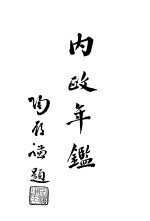 內政年鑑
陶履謙題